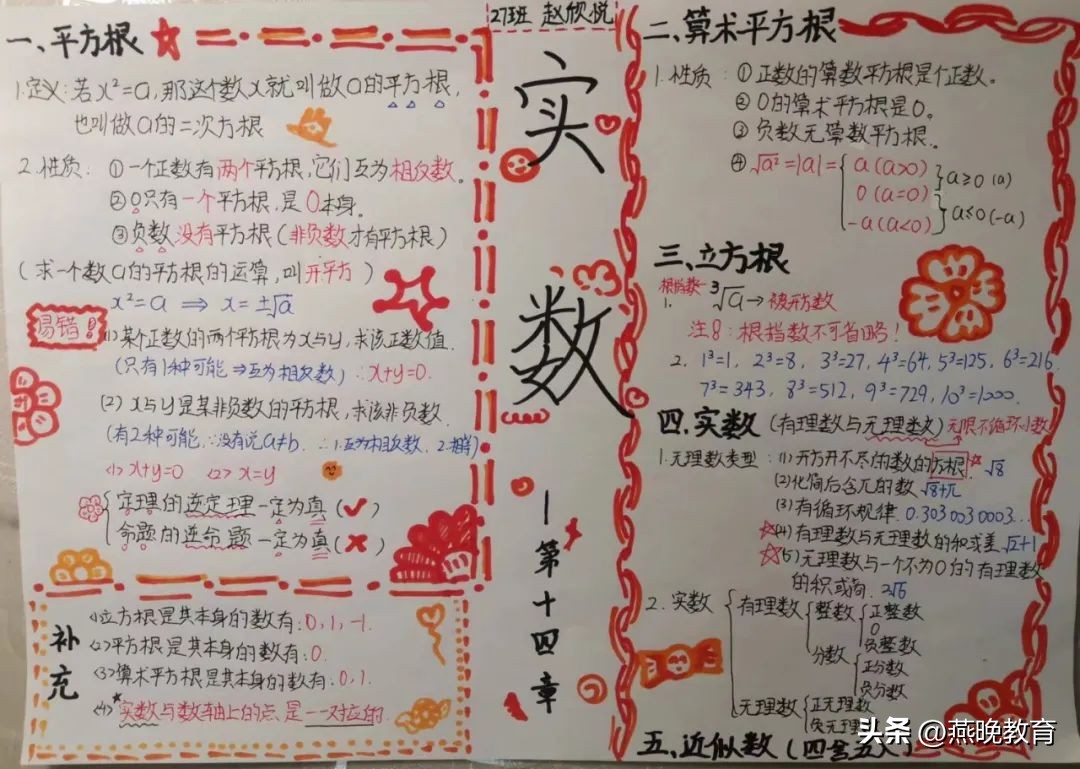 27班 赵欣悦
实数
—第十四章
一、平方根
1.定义:若x²=a,那这个数x就叫做a的平方根,
也叫做a的二次方根
2.性质: ①一个正数有两个平方根,它们互为相反数。
②0只有一个平方根,是0本身。
③负数没有平方根(非负数才有平方根)
(求一个数a的平方根的运算,叫开平方)
x²=a ⇒ x=±√a
易错!
(1)某个正数的两个平方根为x与y,求该正数值.
(只有1种可能⇒互为相反数) ∴x+y=0.
(2) x与y是某非负数的平方根,求该非负数.
(有2种可能,∵没有说a≠b, ∴1.互为相反数. 2.相等)
<1> x+y=0 <2> x=y
定理的逆定理一定为真(✓)
命题的逆命题一定为真(✗)
补充
<1>立方根是其本身的数有:0,1,-1.
<2>平方根是其本身的数有:0.
<3>算术平方根是其本身的数有:0,1.
<4>实数与数轴上的点是一一对应的.
二、算术平方根
1.性质: ①正数的算数平方根是个正数。
②0的算术平方根是0。
③负数无算数平方根.
④√a²=|a|={ a(a>0)
0(a=0)
-a(a<0)
}a≥0(a)
}a≤0(-a)
三、立方根
根指数
1. ³√a→被开方数
注8:根指数不可省略!
2. 1³=1, 2³=8, 3³=27, 4³=64, 5³=125, 6³=216.
7³=343, 8³=512, 9³=729, 10³=1000.
四.实数(有理数与无理数)无限不循环小数
1.无理数类型: (1)开方开不尽的数的方根 √8
(2)化简后含π的数 √8+π
(3)有循环规律. 0.3030030003...
(4)有理数与无理数的和或差 √2+1
(5)无理数与一个不为0的有理数
的积或商. 2√6
2.实数{有理数{整数{正整数
0
负整数
分数{正分数
负分数
无理数{正无理数
负无理
五、近似数(四舍五入)
头条 @燕晚教育